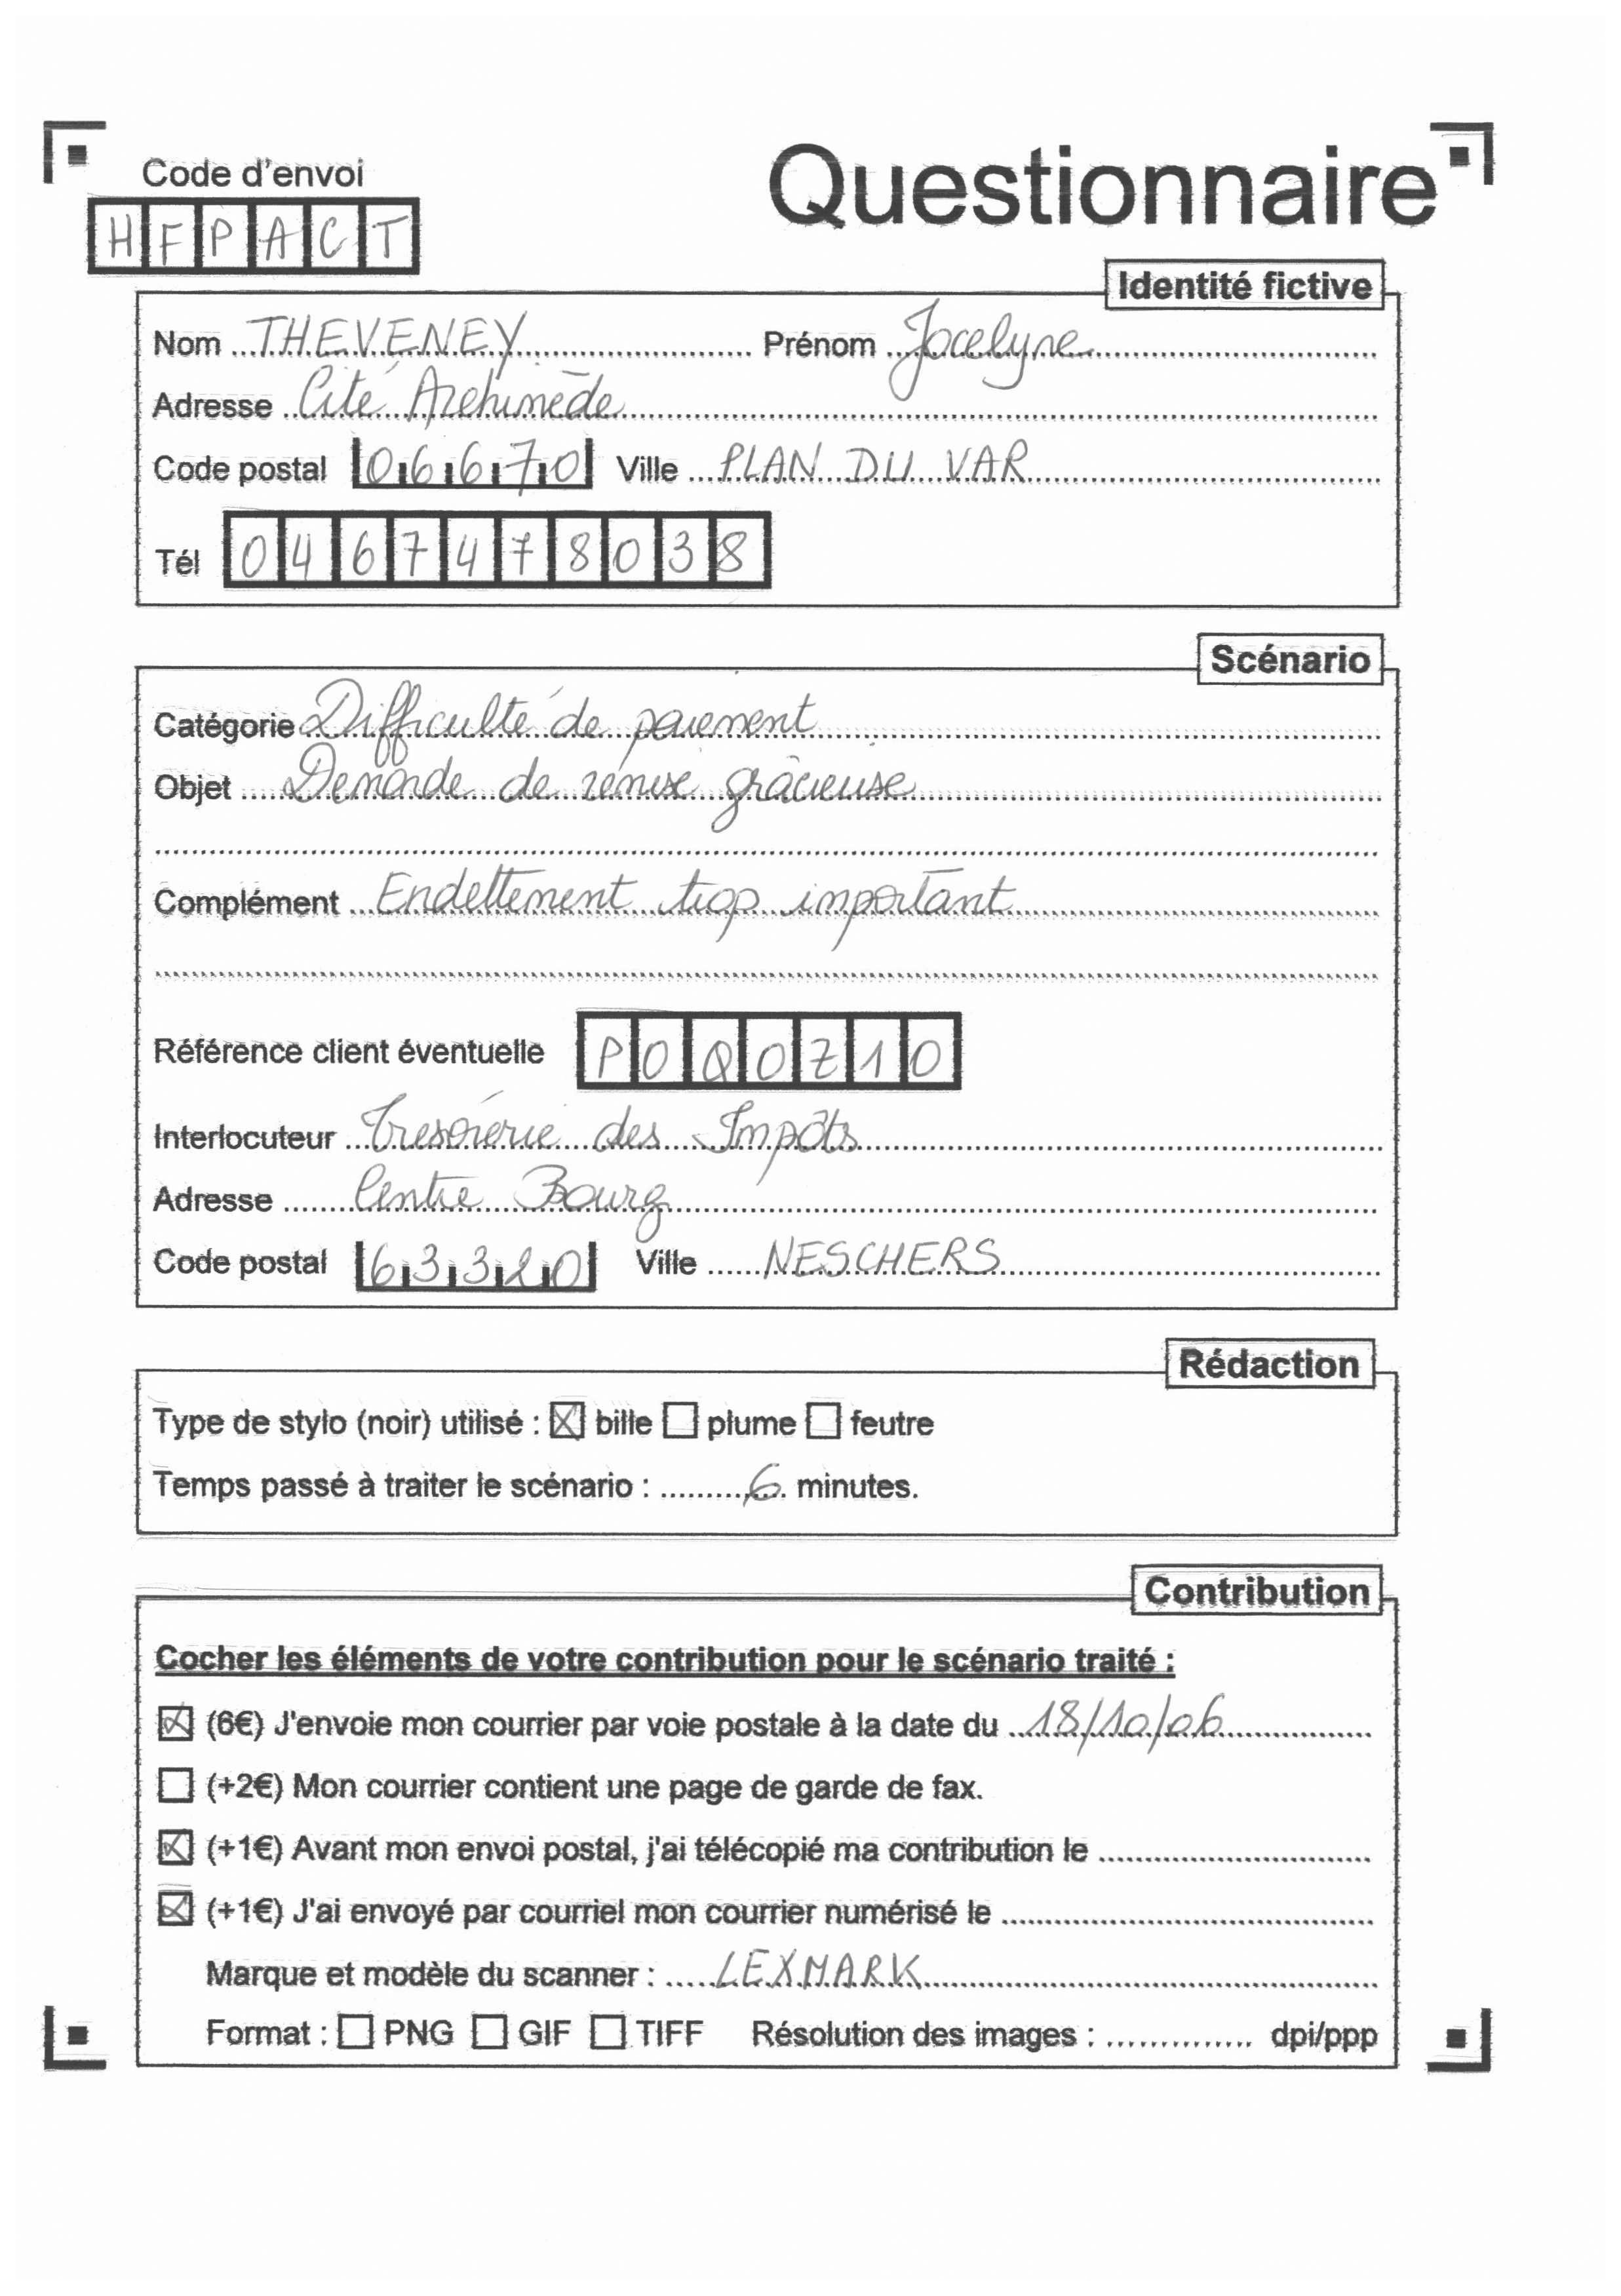 Code d'envoi
Questionnaire
HFPACT
Identité fictive
Nom THEVENEY Prénom Jocelyne
Adresse Cité Archimède
Code postal 06670 Ville PLAN DU VAR
Tél 0467478038
Scénario
Catégorie Difficulté de paiement
Objet Demande de remise grâcieuse
Complément Endettement trop important
Référence client éventuelle POQOZ10
Interlocuteur Tresorerie des Impôts
Adresse Centre Bourg
Code postal 63320 Ville NESCHERS
Rédaction
Type de stylo (noir) utilisé : ☒ bille ☐ plume ☐ feutre
Temps passé à traiter le scénario : 6 minutes.
Contribution
Cocher les éléments de votre contribution pour le scénario traité :
☒ (6€) J'envoie mon courrier par voie postale à la date du 18/10/06
☐ (+2€) Mon courrier contient une page de garde de fax.
☒ (+1€) Avant mon envoi postal, j'ai télécopié ma contribution le
☒ (+1€) J'ai envoyé par courriel mon courrier numérisé le
Marque et modèle du scanner : LEXMARK
Format : ☐ PNG ☐ GIF ☐ TIFF Résolution des images : dpi/ppp